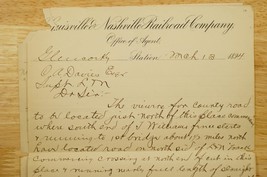 Louisville & Nashville Railroad Company.
Office of Agent,
Glenworth Station Mch 13 1894
J A Davies Esqr
Supt R M
Dr Sir
The viewers for county road
to be located just north of this place
when south end of J Williams farm starts
& running to 1st bridge about 1½ miles north
have located road on north side of R R
Company crossing at north end of cut in this
place & running nearly full length of